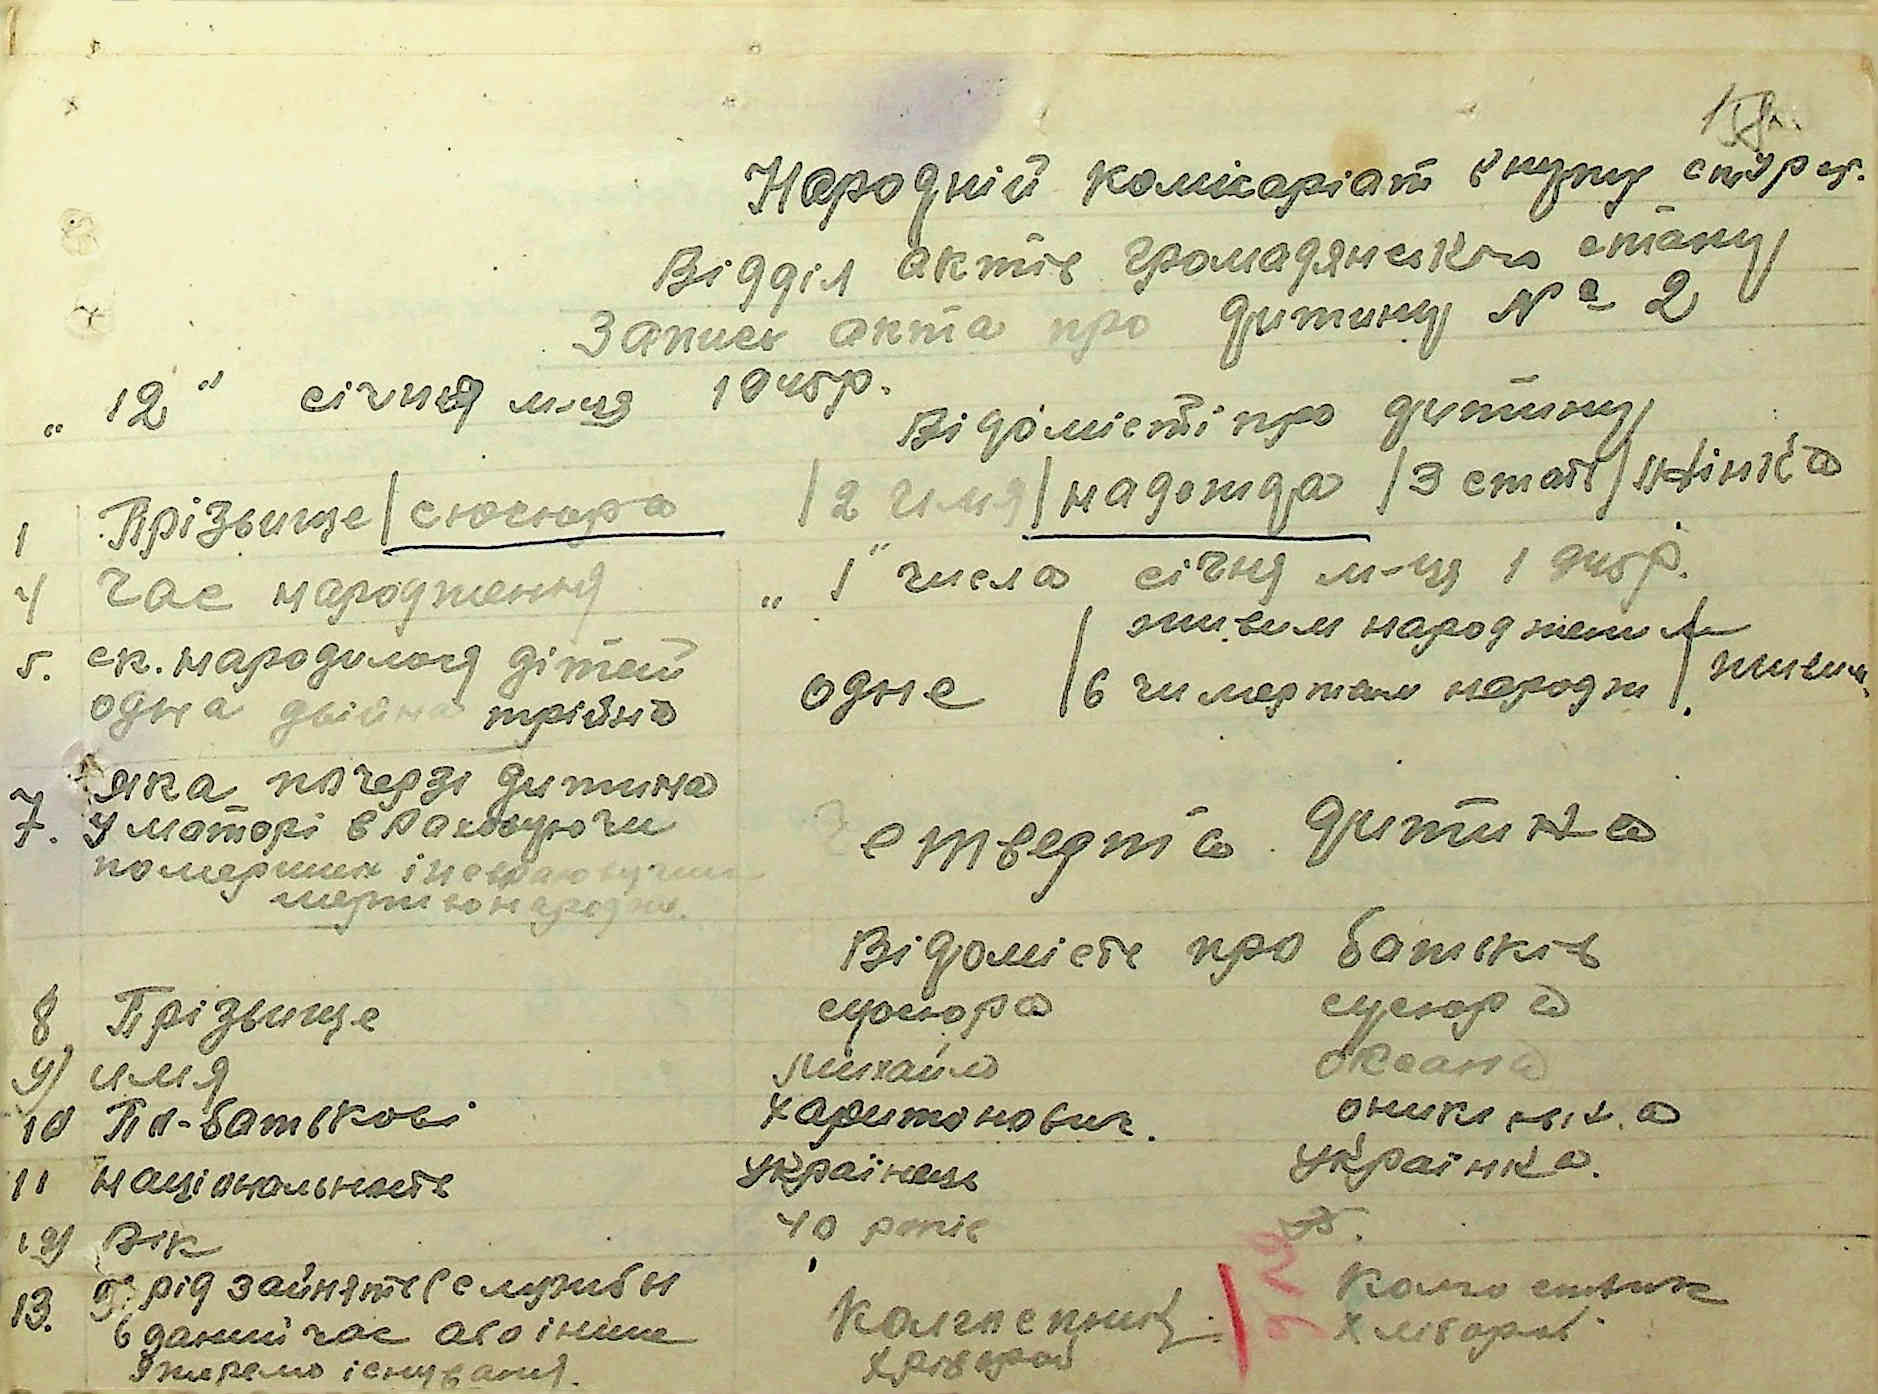 Народній комісаріат внутр справ.
Відділ актів громадянського стану
Запись акта про дитину № 2
„ 12 " січня м-ця 1945р.
Відомісті про дитину
1 Прізвище | сюсюра | 2 имя | надежда | 3 стать | жінка
4 час народження „ 1 " числа січня м-ця 1945р.
5. ск. народилося дітей
одна двійна трійна одне | 6 живим народжени
чи мертвим народж | живим
7. яка по черзі дитина
у матері враховуючи четвертa дитина
померших і невраховуючи
мертвонародж.
Відомість про батьків
8 Прізвище сусюра сусюра
9) имя михайло оксана
10 По-батькові харитонович.
11 національність українець українка.
12) Вік 40 років
13. рід зайняття (служби
в даний час або інше Колгоспник
джерело існування. хлібороб хлібороб